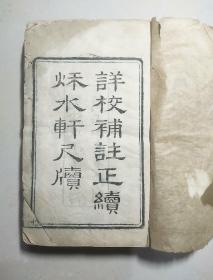 詳校補註正續
秌水軒尺牘